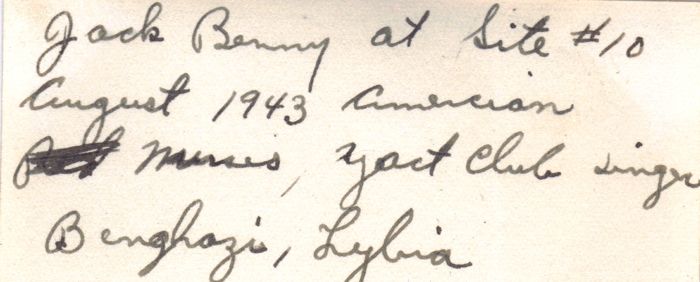 Jack Benny at Site #10
August 1943 Amercian
Nurses, Yact Club singer
Benghazi, Lybia